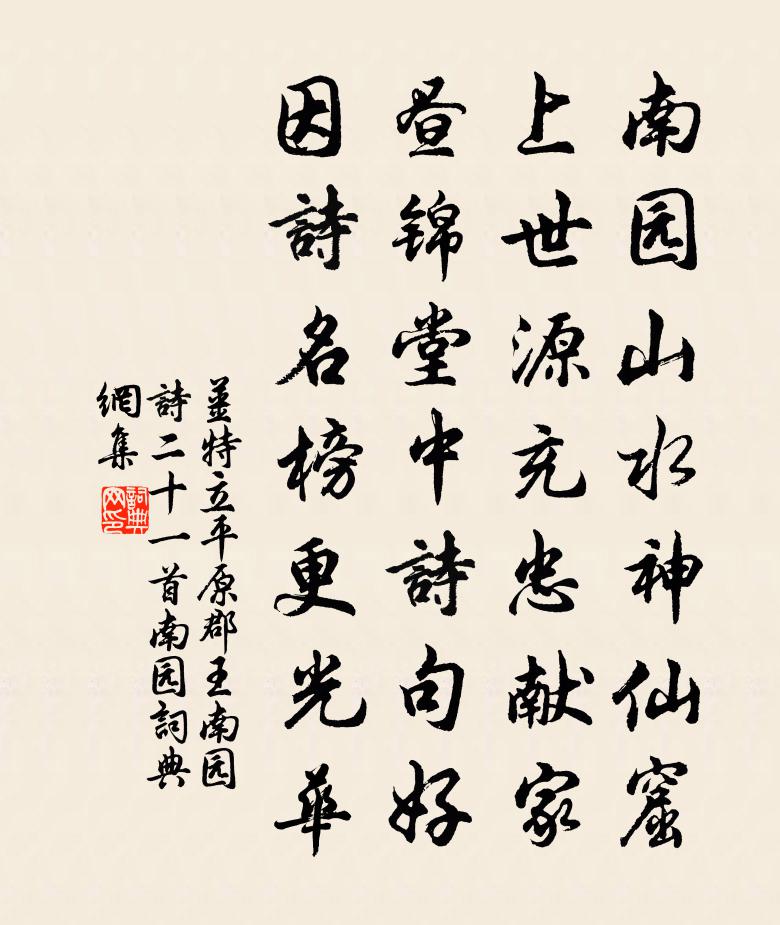 南园山水神仙窟
上世源充忠献家
昼锦堂中詩句好
因詩名榜更光華
薑特立平原郡王南园
詩二十一首南园詞典
網集
詞典
网印